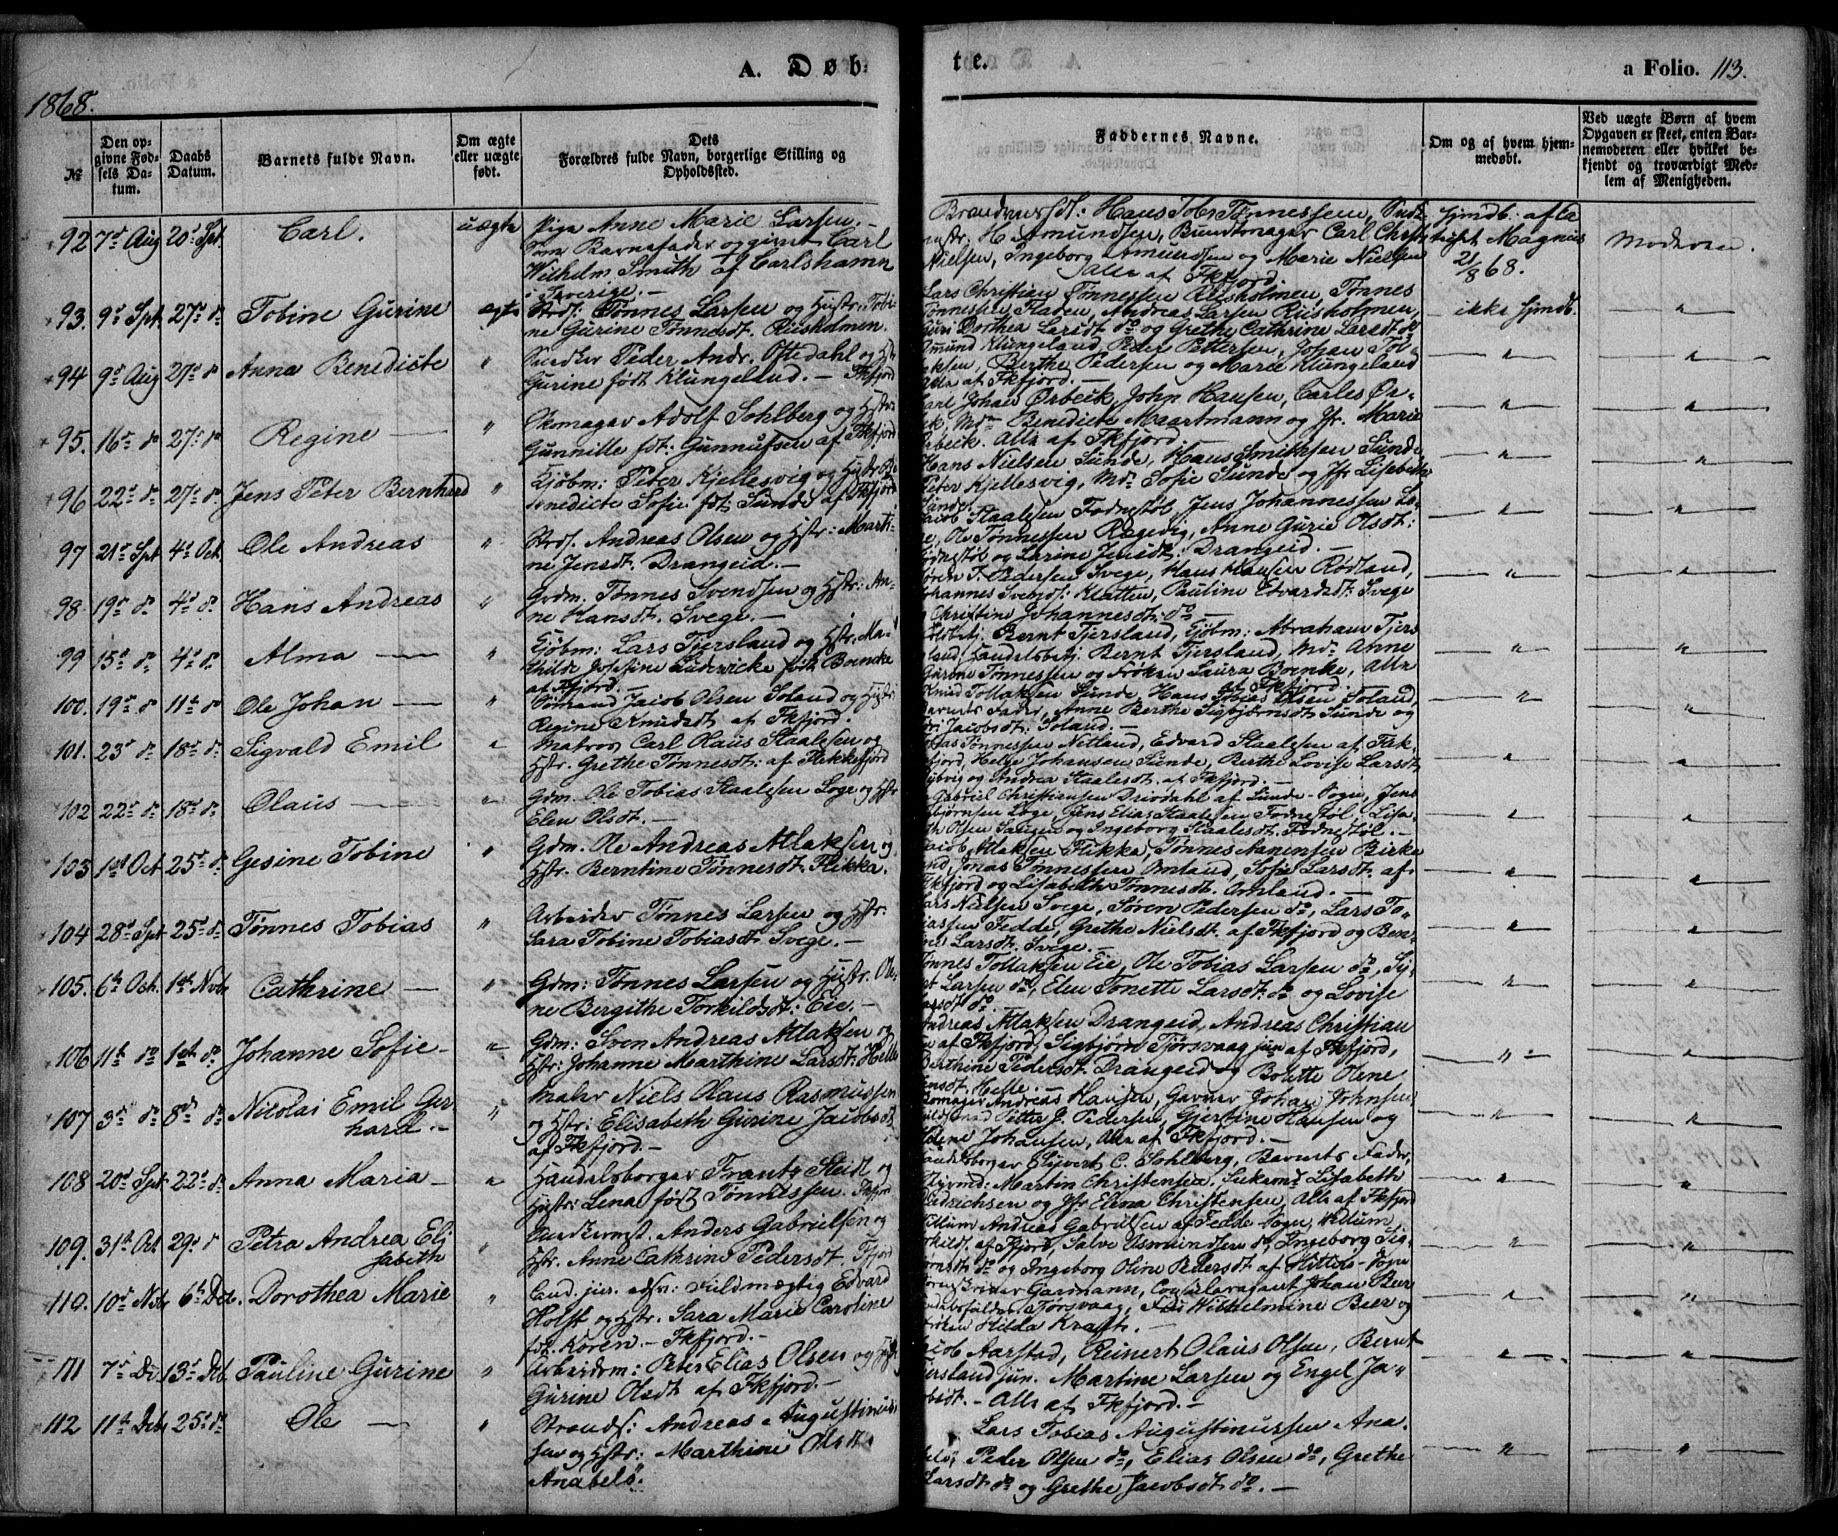 A. Døb-
te.
a Folio. 113.
1868.
№
Den op-
givne Fød-
sels Da-
tum.
Daabs
Datum.
Barnets fulde Navn.
Om ægte
eller uægte
født.
Dets
Forældres fulde Navn, borgerlige Stilling og
Opholdssted.
Faddernes Navne.
Om og af hvem hjem-
medøbt.
Ved uægte Børn af hvem
Opgaven er skeet, enten Bar-
nemoderen eller hvilket be-
kjendt og troværdigt Med-
lem af Menigheden.
92 7de Aug 20de Spt Carl. uægte Pige Anne Marie Larsen.
Som Barnefader opgivet Carl
Wilhelm Smith af Carlshamn
i Sverige.
Hans Tobs Tønnessen,
H. Amundsen, Bundtmager Carl Christ
Nielsen, Ingeborg Amundsen og Marie Nielsen
Alle af Fkfjord.
Magnus
21/8 68.
Moderen.
93. 9de Spt. 27de do Tobine Gurine ægte Strds: Tønnes Larsen og Hustr: Tobi-
ne Gurine Tønnesdt. Risholmen.
Lars Christian Tønnessen Risholmen, Tønnes
Tønnessen Fladen, Andreas Larsen Risholmen,
Guri Dorthea Larsdt do og Grethe Cathrine Larsdt do
ikke hjmdb.
94 9de Aug 27de do Anna Benedicte " Peder Andr. Oftedahl og Hst:
Gurine født Klungeland. — Fkfjord
Amund Klungeland, Peder Pettersen, Johan Tol-
aksen, Berthe Pedersen og Marie Klungeland
Alle af Fkfjord.
95. 16de do 27de do Regine — " Skomager Adolf Sohlberg og Hustr
Gunnille fdt. Gunnufsen af Fkfjord
Johan Ørbeck, John Hansen, Carles Ør-
beck, Md: Benedicte Maartmann og Jfr. Marie
Ørbeck. Alle af Fkfjord.
96 22de do 27de do Jens Peter Bernhard " Kjøbm: Peter Kjellesvig og Hstr Be
benedicte Sofie fdt: Sunde af Fkfjord
Hans Nielsen Sunde, Hans Smithsen Sunde
Peter Kjellesvig, Md: Sofie Sunde og Jfr Lisebeth
Sunde.
97 21de Spt 4de Oct Ole Andreas " Strds. Andreas Olsen og Hstr: Marti-
ne Jensdt. Drangeid.—
Jacob Staalesen Fodnestøl, Jens Johannessen
Ole Tønnessen Rægevig, Anne Gurie Olsdt:
Fodnestøl og Larine Jensdt: Drangeid.
98. 19de do. 4de do. Hans Andreas " Grdm. Tønnes Svendsen og Hstr: An-
ne Hansdt. Svege.—
Søren T. Pedersen Svege, Hans Hansen Rødland,
Johannes Klatten, Pauline Edvardsdt Svege
Christine Johannesdt: do
99 15de do. 4de do. Alma — " Kjøbm: Lars Tjersland og Hstr: Ma-
thilde Josefine Ludevicke født Brincke
af Fkfjord.
Bernt Tjersland, Kjøbm: Abraham Tjers
land, Handelsbetj: Bernt Tjersland, Md: Anne
Gurine Tønnessen og Frøken Laura Brinke, Alle
af Fkfjord.
100. 19de do 11te do Ole Johan — " Sømand Jacob Olsen Soland og Hustr
Regine Knudsdt. af Fkfjord.
Knud Tollaksen Sunde, Hans Tobias Olsen Soland,
Barnets Fader, Anne Berthe Sigbjørnsdt. Sunde og
Jacobsdt: Soland.
101. 23de do 18de do. Sigvald Emil " Matros Carl Olaus Staalesen og
Hstr. Grethe Tønnesdt: af Flekkefjord
Tønnessen Nitland, Edvard Staalesen af Flk-
fjord, Helje Johansen Sunde, Berthe Lovise Larsdt
og Andrea Staalesdt. af Fkfjord.
102 22de do 18de do. Olaus — " Gdm. Ole Tobias Staalesen Loge og Hstr
Elen Olsdt.—
Gabriel Christiansen Driodahl af Sunde-Sogn, Jens
Loge, Jens Elias Staalesen Fodnestøl, Lisa-
beth Olsen og Ingeborg Staalesdt. Fodnestøl.—
103 1ste Oct 25de do. Gesine Tobine " Gdm. Ole Andreas Atlaksen og
Hstr. Berntine Tønnesdt. Flikka.
Jacob Atlaksen Flikka, Tønnes Aanensen Birke
land, Jonas Tønnessen Omland, Sofie Larsdt. af
Fkfjord og Lisabeth Tønnesdt. Omland.—
104 28de Spt 25de do Tønnes Tobias " Arbeider Tønnes Larsen og Hstr:
Sara Tobine Tobiasdt. Svege.—
Lars Nielsen Svege, Søren Pedersen do, Lars To-
biassen Fedde, Grethe Nielsdt. af Fkfjord og Ben-
Larsdt. Svege.—
105. 6te Oct. 1ste Nvbr Cathrine — " Gdm: Tønnes Larsen og Hustr. Ole-
ne Bergithe Torkildsdt: Eie.—
Tønnes Tollaksen Eie, Ole Tobias Larsen do,
Larsen do, Elen Tonette Larsdt. do og Lovise
Larsdt do.
106 11te do 1ste do. Johanne Sofie— " Gdm: Sven Andreas Atlaksen og
Hstr: Johanne Marthine Larsdt: Helle
Andreas Atlaksen Drangeid, Andreas Christian
af Fkfjord, Sigbjørn Tjørsvaag jun af Fkfjord,
Berthine Pedersdt. Drangeid og Bolette Olene
Jensdt. Helle.—
107 3de do. 8de do. Nicolai Emil Ger
hard.— " Maler Niels Olaus Rasmussen
og Hstr: Elisabeth Gurine Jacobsdt
af Fkfjord.—
Skomager Andreas Hansen, Garver Johan Johnsen
Petter J. Pedersen, Gjertine Hansen og
Johansen, Alle af Fkfjord.—
108 20de Spt 22de do Anna Maria— " Handelsborger Frantz Steidl og
Hustr: Lena født Tønnessen. Fkfjord
Handelsborger Sijvert C. Sohlberg, Barnets Fader,
Martin Christensen, Lisabeth
Diedrichsen og Jfr Elena Christensen, Alle af Fkfjord
109. 31te Oct 29de do Petra Andrea Eli
sabeth " Anders Gabrielsen og
Hstr. Anne Cathrine Pedersdt. Fkfjord
Villum Andreas Gabrielsen af Fedde Sogn, Villum
af Fkfjord, Salve Asmundsen do, Ingeborg Sig-
do og Ingeborg Oline Pedersdt af Hitterø-Sogn
110. 10de Nvbr 6te Decb. Dorothea Marie " Cand. jur. Fuldmægtig Edvard
Holst og Hstr. Sara Marie Caroline
fdt. Koren.— Fkfjord.—
Garmann, Consul Johan Beer
Tjørsvaag, Fru Wilhelmine Beer og
Frøken Hilda Kraft.—
111 7de Dec 13de Dcb Pauline Gurine " Arbeidsm: Peter Elias Olsen og Hustr
Gurine Olsdt af Fkfjord.—
Jacob Aarstad, Reinert Olaus Olsen, Bernt
Tjersland jun. Martine Larsen og Engel Ja-
cobsdt.— Alle af Fkfjord.—
112 11te Dcb 25de do. Ole — " Strands: Andreas Augustinus-
sen og Hstr: Marthine Olsdt.
Anabelø.
Lars Tobias Augustinussen Ana-
belø, Peder Olsen do, Elias Olsen do, Grethe
Larsdt do og Grethe Jacobsdt. do.—